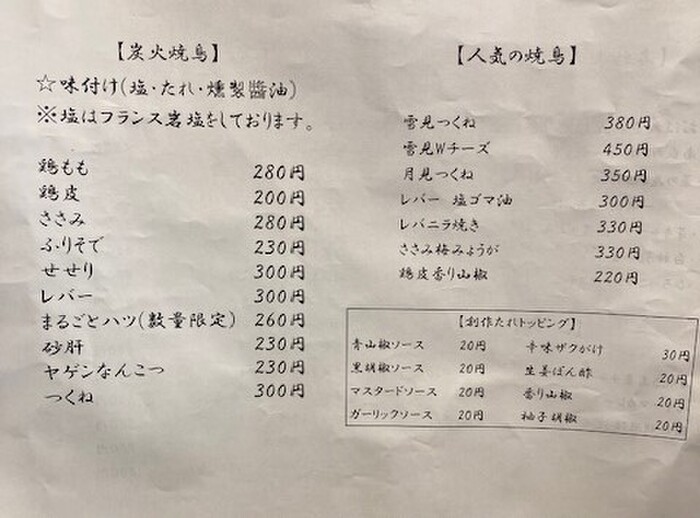 【炭火焼鳥】
☆味付け(塩・たれ・燻製醬油)
※塩はフランス岩塩をしております。
鶏もも 280円
鶏皮 200円
ささみ 280円
ふりそで 230円
せせり 300円
レバー 300円
まるごとハツ(数量限定) 260円
砂肝 230円
ヤゲンなんこつ 230円
つくね 300円
【人気の焼鳥】
雪見つくね 380円
雪見Wチーズ 450円
月見つくね 350円
レバー 塩ゴマ油 300円
レバニラ焼き 330円
ささみ梅みょうが 330円
鶏皮香り山椒 220円
【創作たれトッピング】
青山椒ソース 20円 辛味ザクがけ 30円
黒胡椒ソース 20円 生姜ぽん酢 20円
マスタードソース 20円 香り山椒 20円
ガーリックソース 20円 柚子胡椒 20円